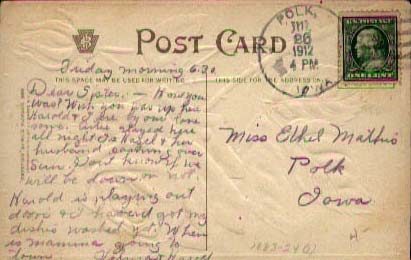 POST CARD
THIS SPACE MAY BE USED FOR WRITING
THIS SIDE FOR THE ADDRESS ONLY
POLK,
JUL
26
1912
4 PM
IOWA
U.S. POSTAGE
ONE CENT
Friday morning 6.30
Dear Sister: – How are you
was? Wish you was up here
Harold & I are by our lone
some. stayed here
all night & Hazel & her
husband coming over
Sun. I don't know if we
will be down or not
Harold is playing out
doors & I haven't got my
dishes washed yet. When
is mamma going to
town.
Miss Ethel Mathis
Polk
Iowa